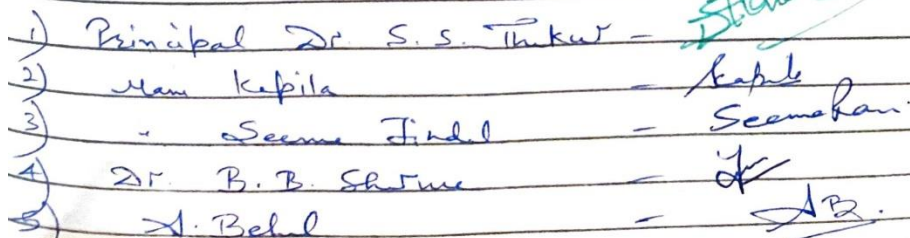 1) Principal Dr. S. S. Thakur -
2) Mam Kapila - Kapila
3) " Seema Jindal - Seema Rani
4) Dr. B. B. Sharma -
5) A. Behal - AB.